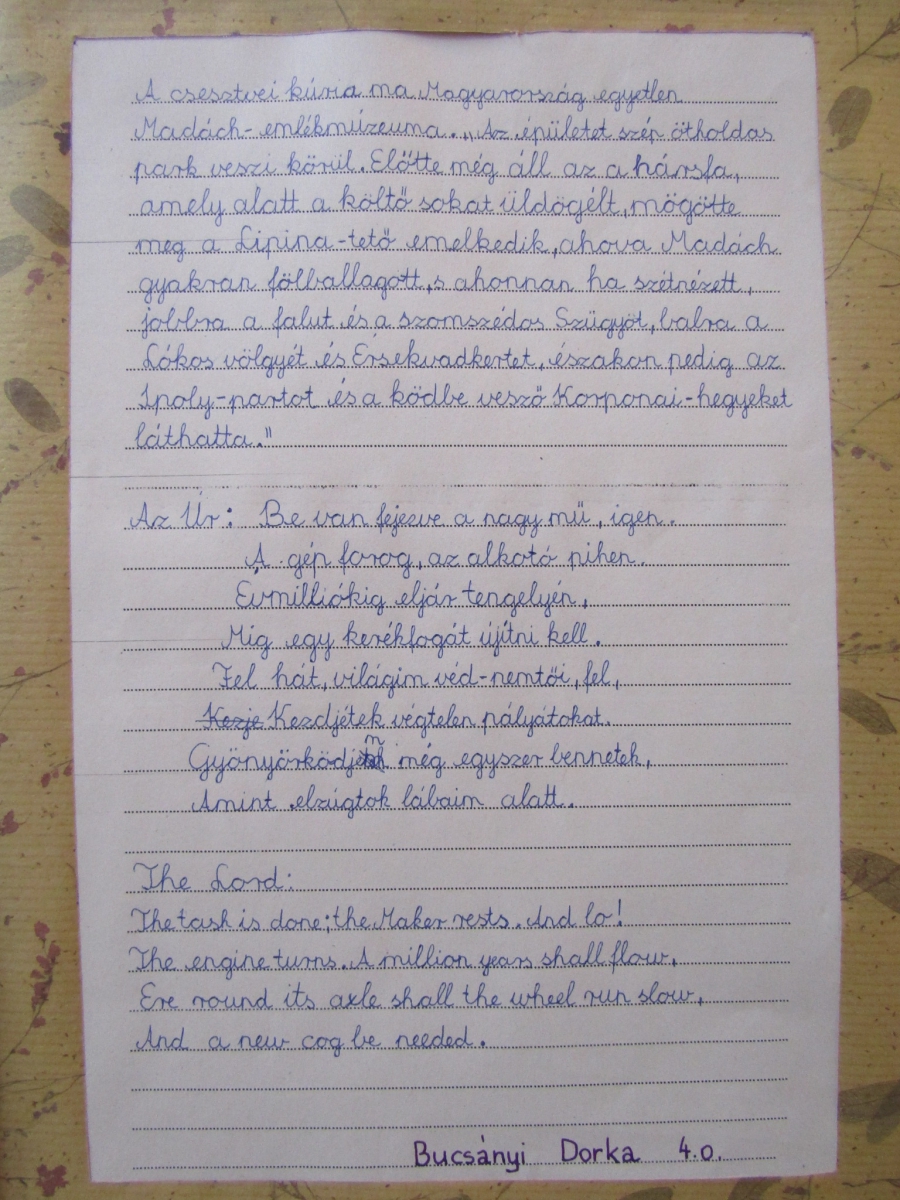 A csesztvei kúria ma Magyarország egyetlen
Madách-emlékmúzeuma. „Az épületet szép ötholdas
park veszi körül. Előtte még áll az a hársfa,
amely alatt a költő sokat üldögélt, mögötte
meg a Lipina-tető emelkedik, ahova Madách
gyakran fölballagott, s ahonnan ha szétnézett,
jobbra a falut és a szomszédos Szügyöt, balra a
Lókos völgyét és Érsekvadkertet, északon pedig az
Ipoly-partot és a ködbe vesző Korponai-hegyeket
láthatta."
Az Úr: Be van fejezve a nagy mű, igen.
A gép forog, az alkotó pihen.
Évmilliókig eljár tengelyén,
Mig egy kerékfogát újítni kell.
Fel hát, világim véd-nemtői, fel,
Kezje Kezdjétek végtelen pályátokat.
Gyönyörködjem még egyszer bennetek,
Amint elzúgtok lábaim alatt.
The Lord:
The task is done; the Maker rests. And lo!
The engine turns. A million years shall flow,
Ere round its axle shall the wheel run slow,
And a new cog be needed.
Bucsányi Dorka 4.o.